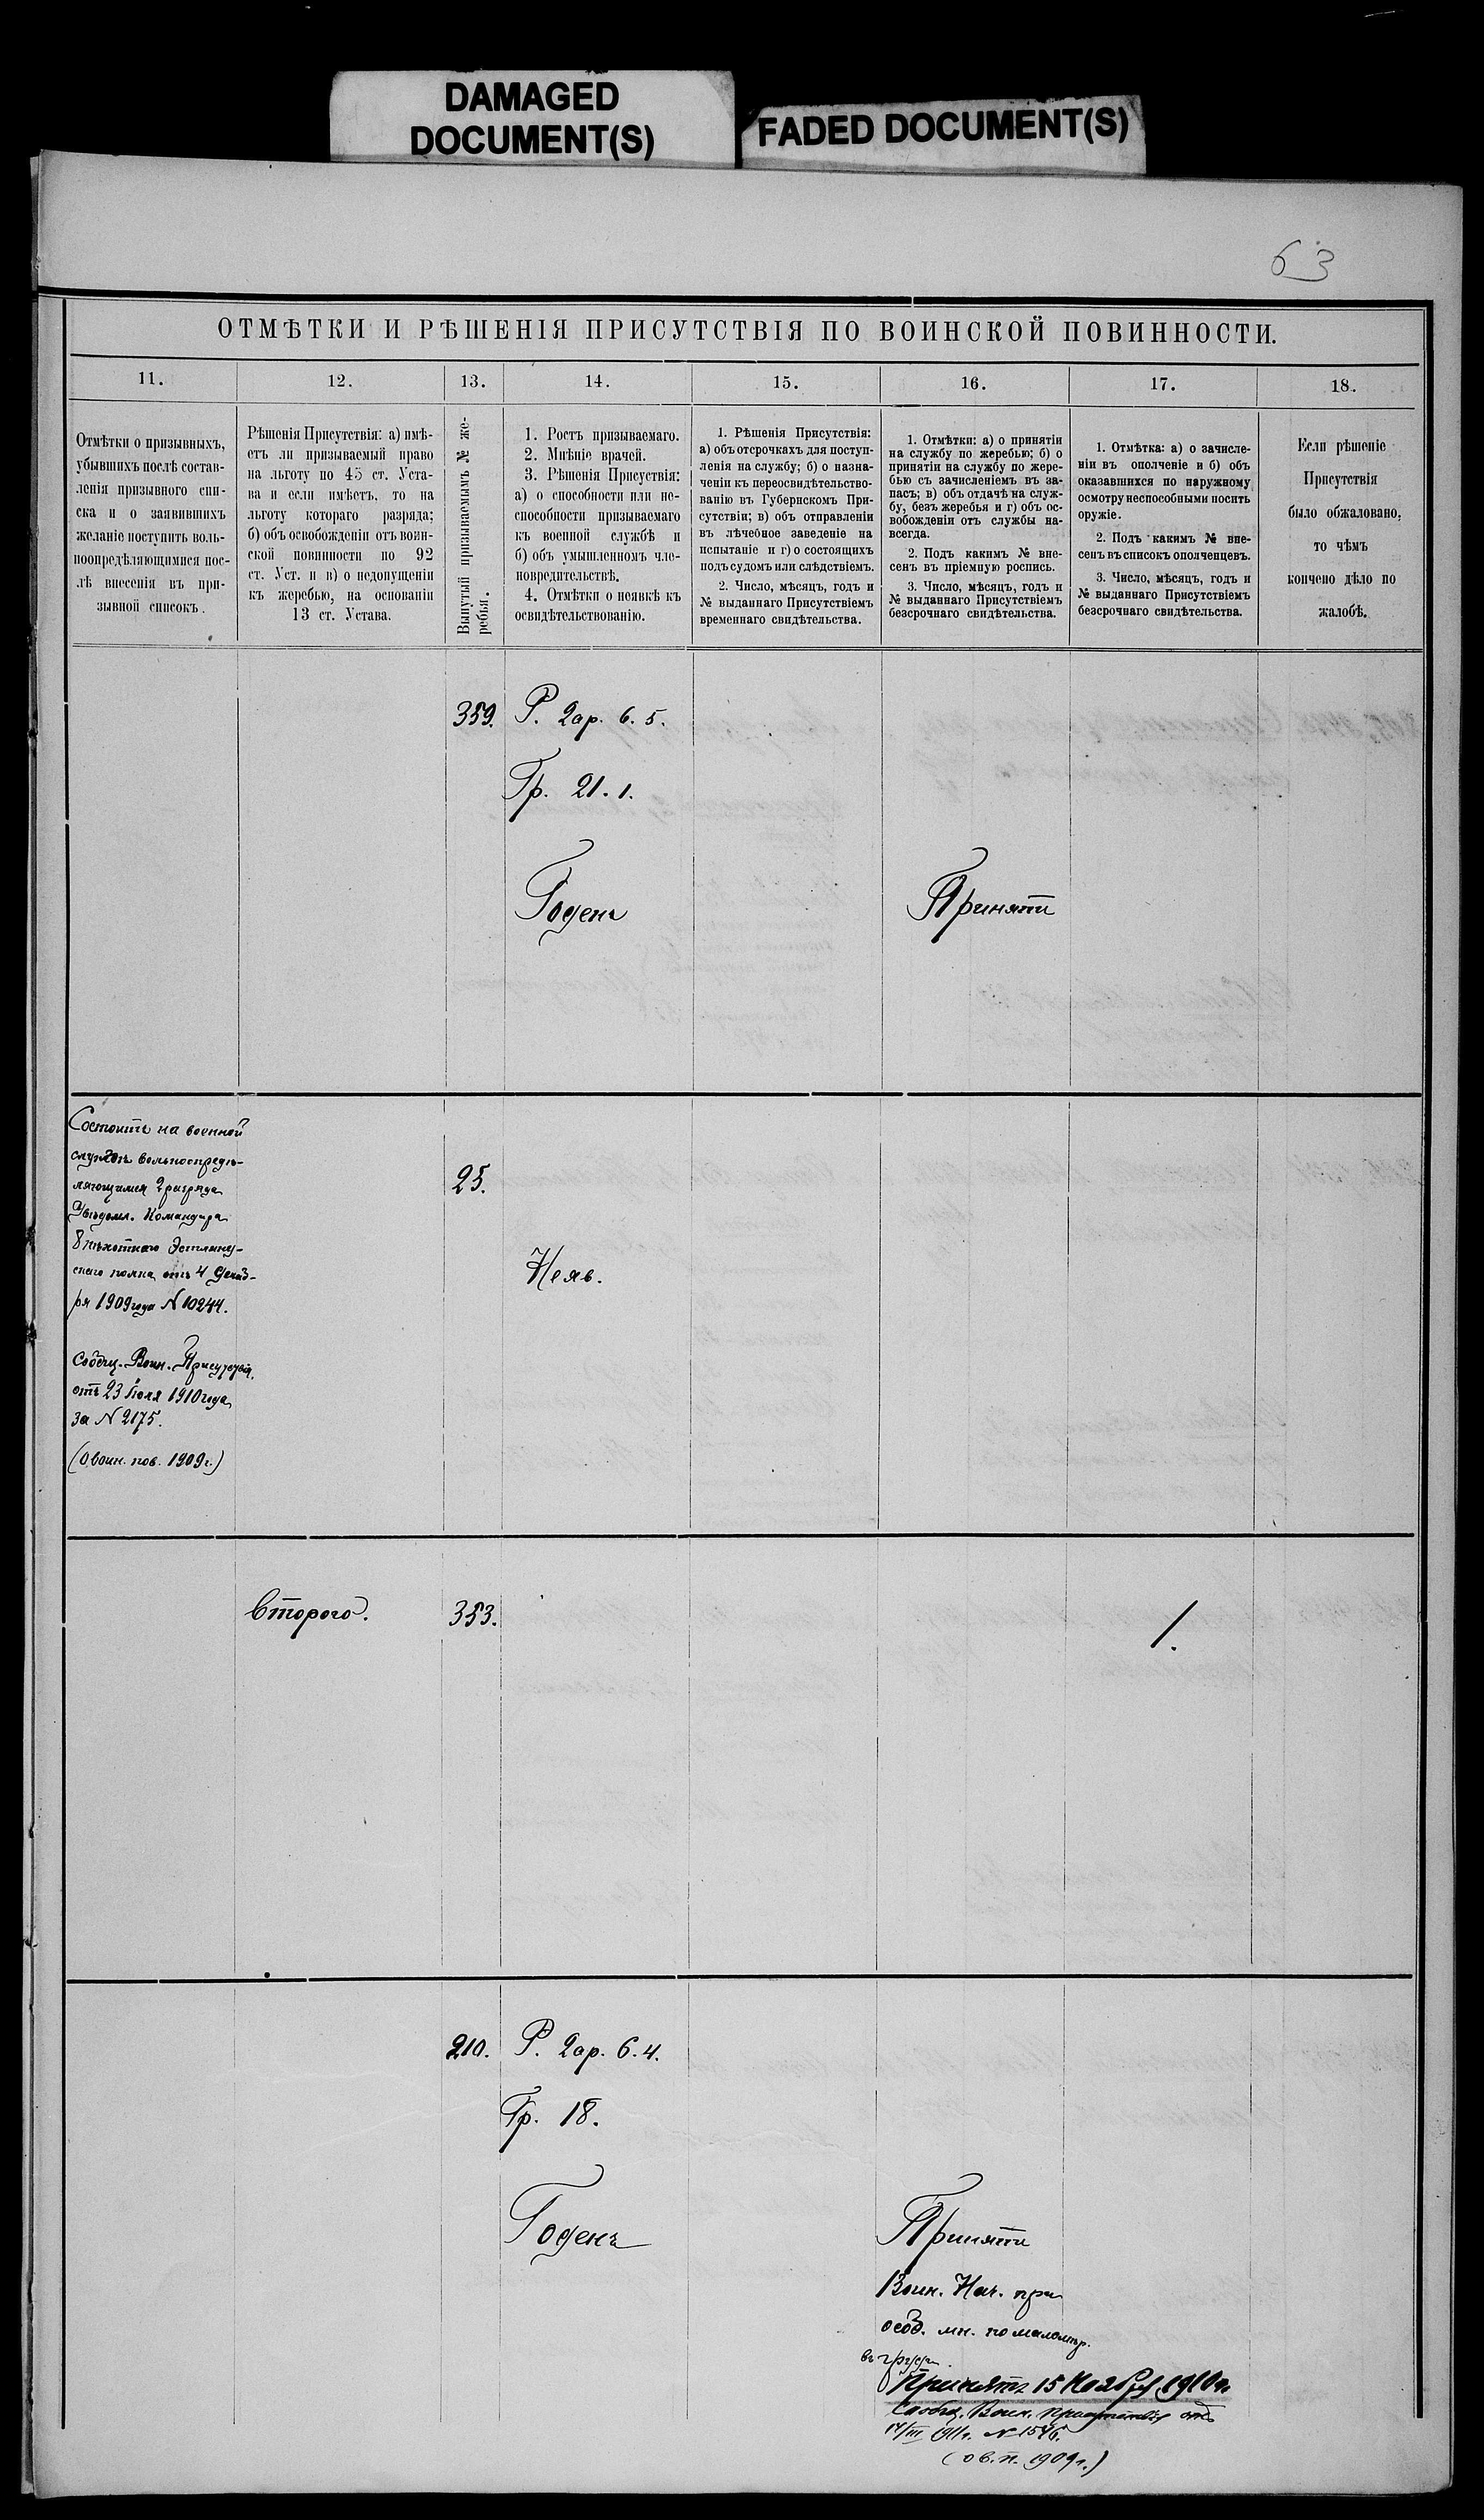 DAMAGED
DOCUMENT(S)
FADED DOCUMENT(S)
63
ОТМѢТКИ И РѢШЕНІЯ ПРИСУТСТВІЯ ПО ВОИНСКОЙ ПОВИННОСТИ.
11.
12.
13.
14.
15.
16.
17.
18.
Отмѣтки о призывныхъ,
убывшихъ послѣ состав-
ленія призывного спи-
ска и о заявившихъ
желаніе поступить воль-
ноопредѣляющимися пос-
лѣ внесенія въ при-
зывной списокъ.
Рѣшенія Присутствія: а) имѣ-
етъ ли призываемый право
на льготу по 45 ст. Уста-
ва и если имѣетъ, то на
льготу котораго разряда;
б) объ освобожденіи отъ воин-
ской повинности по 92
ст. Уст. и в) о недопущеніи
къ жеребью, на основаніи
13 ст. Устава.
Вынутый призываемымъ № же-
ребья.
1. Ростъ призываемаго.
2. Мнѣніе врачей.
3. Рѣшенія Присуствія:
а) о способности или не-
способности призываемаго
къ военной службѣ и
б) объ умышленномъ чле-
новредительствѣ.
4. Отмѣтки о неявкѣ къ
освидѣтельствованію.
1. Рѣшенія Присутствія:
а) объ отсрочкахъ для поступ-
ленія на службу; б) о назна-
ченіи къ переосвидѣтельство-
ванію въ Губернскомъ При-
сутствіи; в) объ отправленіи
въ лѣчебное заведеніе на
испытаніе и г) о состоящихъ
подъ судомъ или слѣдствіемъ.
2. Число, мѣсяцъ, годъ и
№ выданнаго Присутствіемъ
временнаго свидѣтельства.
1. Отмѣтки: а) о принятіи
на службу по жеребью; б) о
принятіи на службу по жере-
бью съ зачисленіемъ въ за-
пасъ; в) объ отдачѣ на служ-
бу, безъ жеребья и г) объ ос-
вобожденіи отъ службы на-
всегда.
2. Подъ какимъ № вне-
сенъ въ пріемную роспись.
3. Число, мѣсяцъ, годъ и
№ выданнаго Присутствіемъ
безсрочнаго свидѣтельства.
1. Отмѣтка: а) о зачисле-
ніи въ ополченіе и б) объ
оказавшихся по наружному
осмотру неспособными носить
оружіе.
2. Подъ какимъ № вне-
сенъ въ списокъ ополченцевъ.
3. Число, мѣсяцъ, годъ и
№ выданнаго Присутствіемъ
безсрочнаго свидѣтельства.
Если рѣшеніе
Присутствія
было обжаловано,
то чѣмъ
кончено дѣло по
жалобѣ.
359.
Р. 2ар. 6.5.
Гр. 21.1.
Годенъ
Принять
Состоитъ на военной
службѣ вольноопредѣ-
ляющимся 2 разряда
Увѣдомл. Командира
8 пѣхотнаго Эстлянд-
скаго полка отъ 4 Декаб-
ря 1909 года № 10244.
Сообщ. Воин. Присутствія.
отъ 23 Іюля 1910 года
за № 2175.
(О воин. пов. 1909 г.)
25.
Неяв.
Второго.
353.
1.
210.
Р. 2ар. 6.4.
Гр. 18.
Годенъ
Принять
Воин. Нач. при
особ. мн. по
Принятъ 15 Ноября 1910 г.
Сообщ. Воин. Присутствія отъ
17/III 1911 г. № 1576.
(о в. п. 1909 г.)